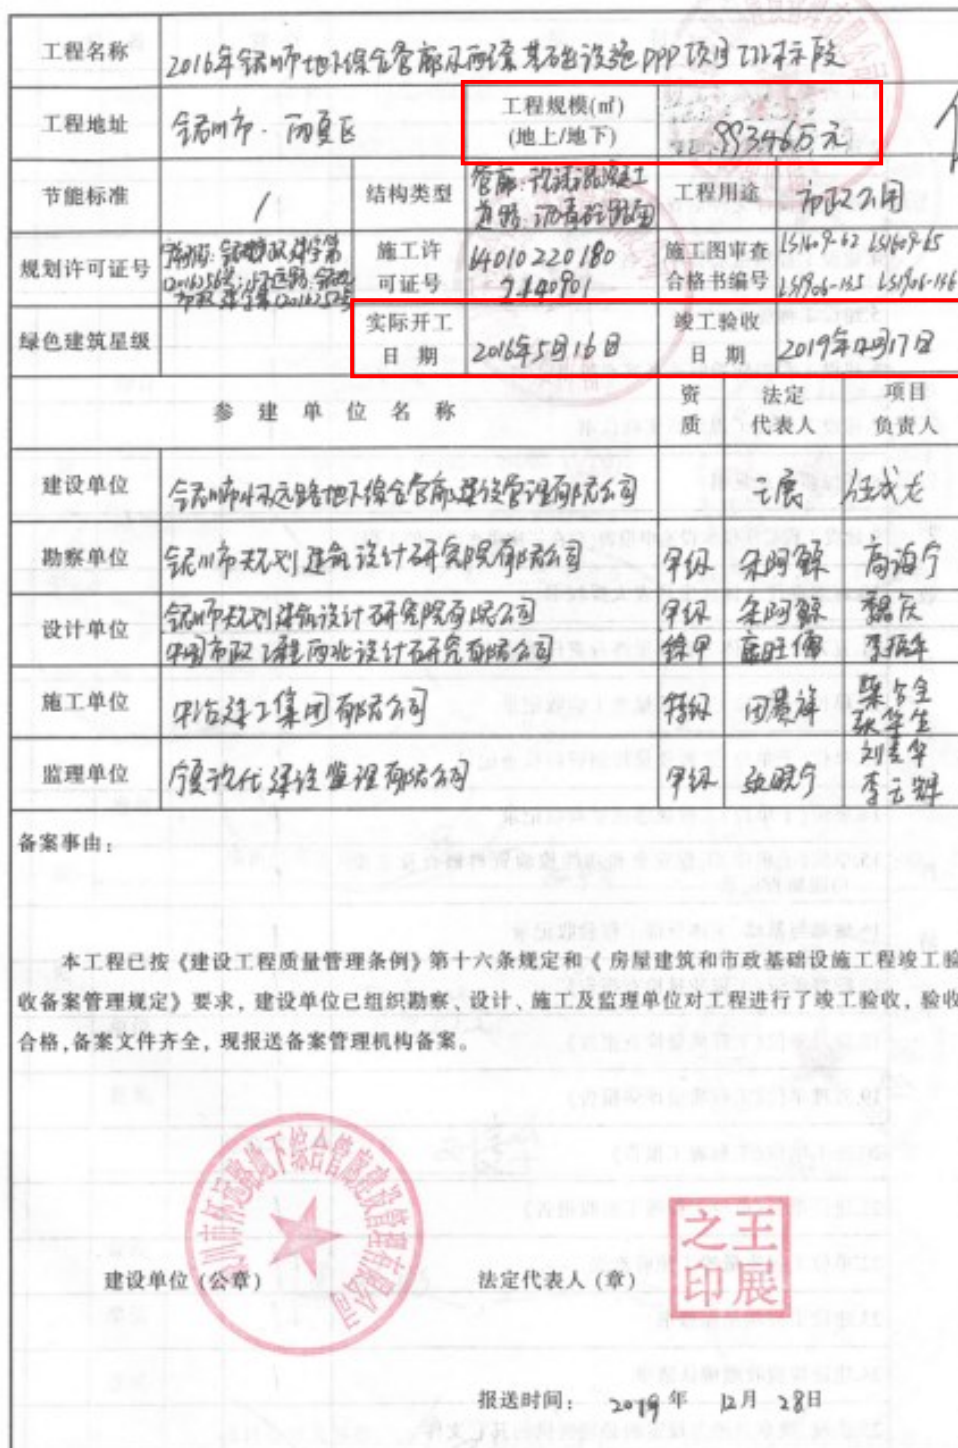 工程名称 2016年银川市地下综合管廊及配套基础设施PPP项目III标段
工程地址 银川市·西夏区 工程规模(㎡) (地上/地下) 99346万元
节能标准 / 结构类型 管廊:现浇混凝土 道路:沥青砼路面 工程用途 市政公用
规划许可证号 施工许可证号 640102201802140901 施工图审查合格书编号 LS1609-62 LS1609-65
LS1906-135 LS1906-136
绿色建筑星级 实际开工日期 2016年5月16日 竣工验收日期 2019年12月17日
参建单位名称 资质 法定代表人 项目负责人
建设单位 银川市怀远路地下综合管廊建设管理有限公司 王展 汪成龙
勘察单位 银川市规划建筑设计研究院有限公司 甲级 高海宁
设计单位 银川市规划建筑设计研究院有限公司 甲级 魏庆
中国市政工程西北设计研究院有限公司 综甲 李振华
施工单位 中冶建工集团有限公司 特级 田贵祥
监理单位 宁夏现代建设监理有限公司 甲级 张晓宁 李云辉
备案事由：
本工程已按《建设工程质量管理条例》第十六条规定和《 房屋建筑和市政基础设施工程竣工验
收备案管理规定》要求，建设单位已组织勘察、设计、施工及监理单位对工程进行了竣工验收，验收
合格,备案文件齐全，现报送备案管理机构备案。
银川市怀远路地下综合管廊建设管理有限公司
王展之印
建设单位（公章） 法定代表人（章）
报送时间： 2019年 12月 28日